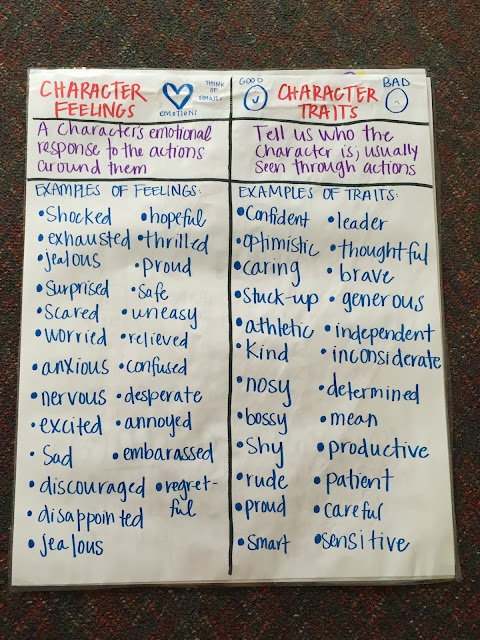 CHARACTER
FEELINGS
EMOTION!
THINK
OF
EMOJIS
A character's emotional
response to the actions
around them
EXAMPLES OF FEELINGS:
• Shocked
• exhausted
• jealous
• Surprised
• Scared
• worried
• anxious
• nervous
• excited
• Sad
• discouraged
• disappointed
• jealous
• hopeful
• thrilled
• proud
• safe
• uneasy
• relieved
• confused
• desperate
• annoyed
• embarassed
• regret-
ful
GOOD
CHARACTER
TRAITS
BAD
Tell us who the
character is; usually
seen through actions
EXAMPLES OF TRAITS:
• Confident
• optimistic
• caring
• stuck-up
• athletic
• Kind
• nosy
• bossy
• Shy
• rude
• proud
• smart
• leader
• thoughtful
• brave
• generous
• independent
• inconsiderate
• determined
• mean
• productive
• patient
• careful
• sensitive